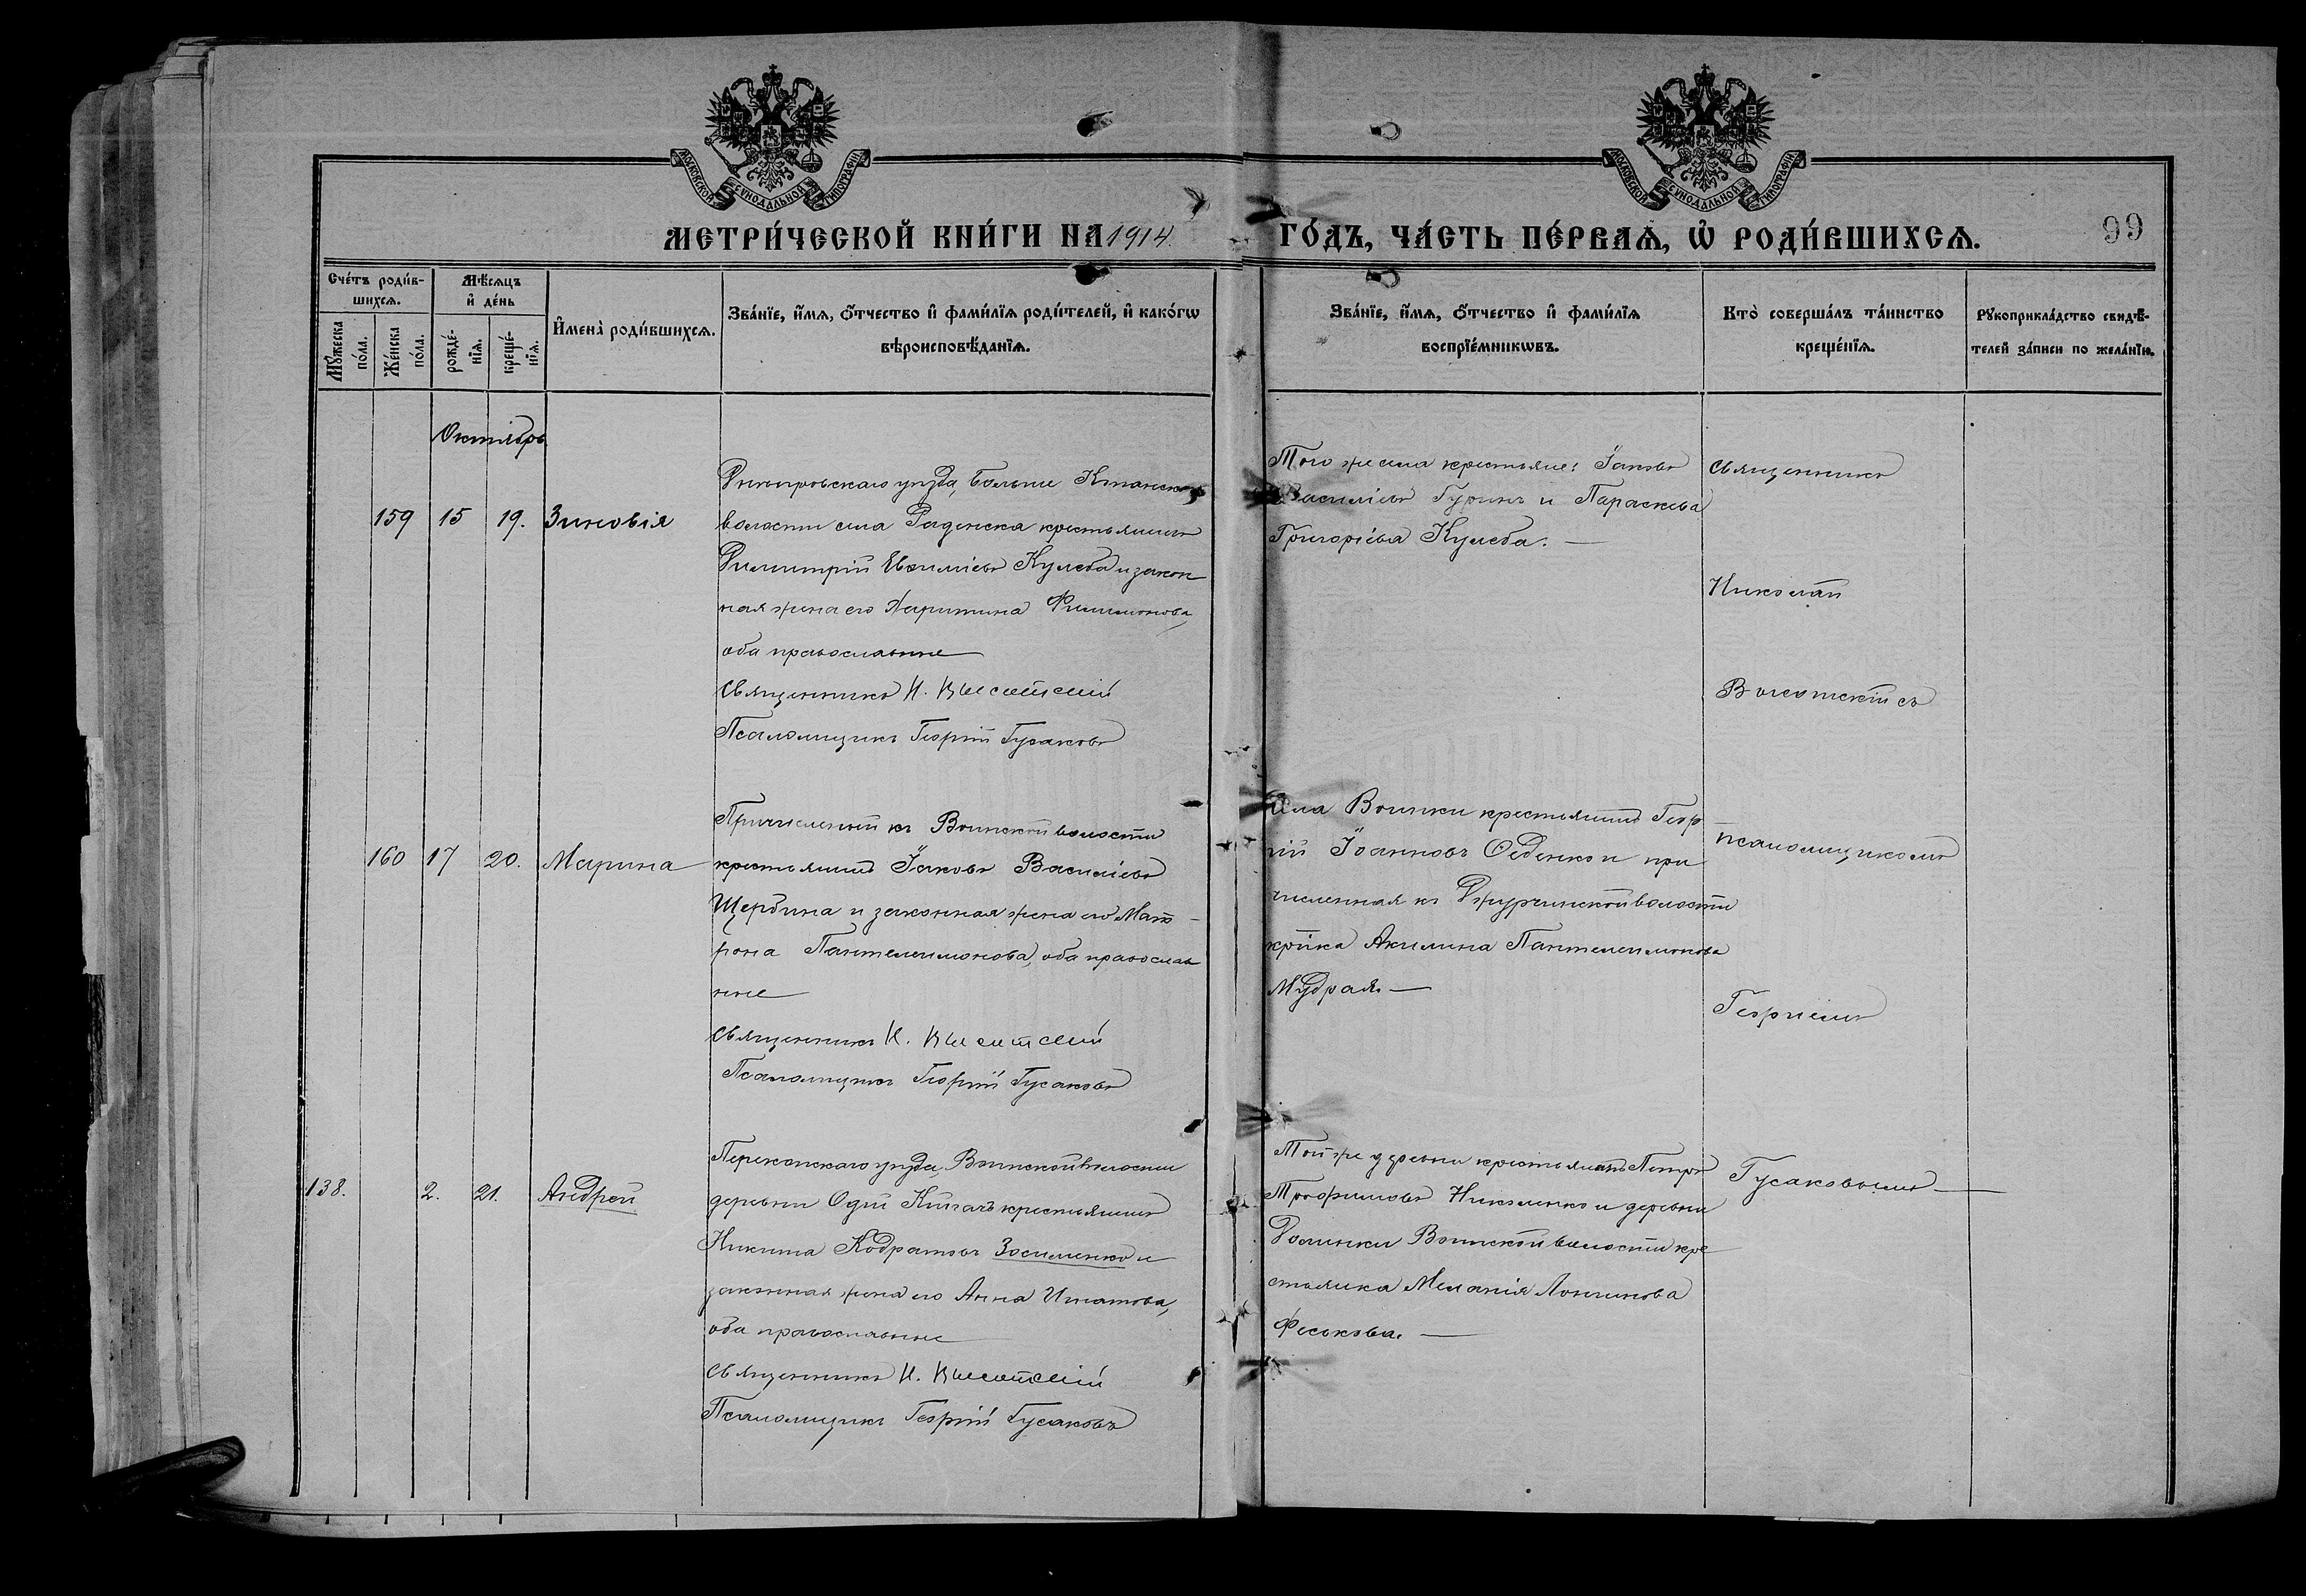 МОСКОВСКОЙ СѴНОДАЛЬНОЙ ТИПОГРАФІИ
МОСКОВСКОЙ СѴНОДАЛЬНОЙ ТИПОГРАФІИ
МЕТРИ́ЧЕСКОЙ КНИ́ГИ НА 1914.
ГО́ДЪ, ЧА́СТЬ ПЕ́РВАѦ, Ѡ҆ РОДИ́ВШИХСѦ.
99
Сче́тъ роди́в-
шихсѧ.
Мѣ́сѧцъ
и҆ де́нь
Мꙋ́жеска по́ла.
Же́нска по́ла.
рожде́-нїѧ.
креще́-нїѧ.
И҆мена̀ роди́вшихсѧ.
Зва́нїе, и҆́мѧ, ѻ҆́тчество и҆ фами́лїѧ роди́телей, и҆ како́гѡ
вѣроисповѣ́данїѧ.
Зва́нїе, и҆́мѧ, ѻ҆́тчество и҆ фами́лїѧ
воспрїе́мникѡвъ.
Кто̀ соверша́лъ та́инство
креще́нїѧ.
Рꙋкоприкла́дство свидѣ́-
телей за́писи по жела́нїю.
Октябрь
159 15 19. Зиновія
Днѣпровскаго уѣзда, Больше
волости села Раденска крестьянинъ
Димитрій Кулеба и закон
ная жена его Харитина Филимонова,
оба православные
Священникъ Н. Высотскій
Псаломщикъ Георгій Гусаковъ
Того же села крестьяне: Іаковъ
Василіевъ Гуринъ и Параскева
Григоріева Кулеба.
Священникъ
Николай
Высотскій съ
160 17 20. Марина
Причисленный къ Воинской волости
крестьянинъ Іаковъ Василіевъ
Щербина и законная жена его Мат-
рона Пантелеимонова, оба православ
ные
Священникъ Н. Высотскій
Псаломщикъ Георгій Гусаковъ
Села Воинки крестьянинъ Геор
гій Іоанновъ и при
численная къ Джурчинской волости
кр-ка Акилина Пантелеимонова
Мудрая.
псаломщикомъ
Георгіемъ
138. 2. 21. Андрей
Перекопскаго уѣзда, Воинской волости
деревни крестьянинъ
Никита Кодратовъ Зосименко и
законная жена его Анна Игнатова,
оба православные
Священникъ Н. Высотскій
Псаломщикъ Георгій Гусаковъ
Той же деревни крестьянинъ Петръ
Трофимовъ Николенко и деревни
Долинки Воинской волости кре
стьянка Меланія Логинова
Феськова.
Гусаковымъ